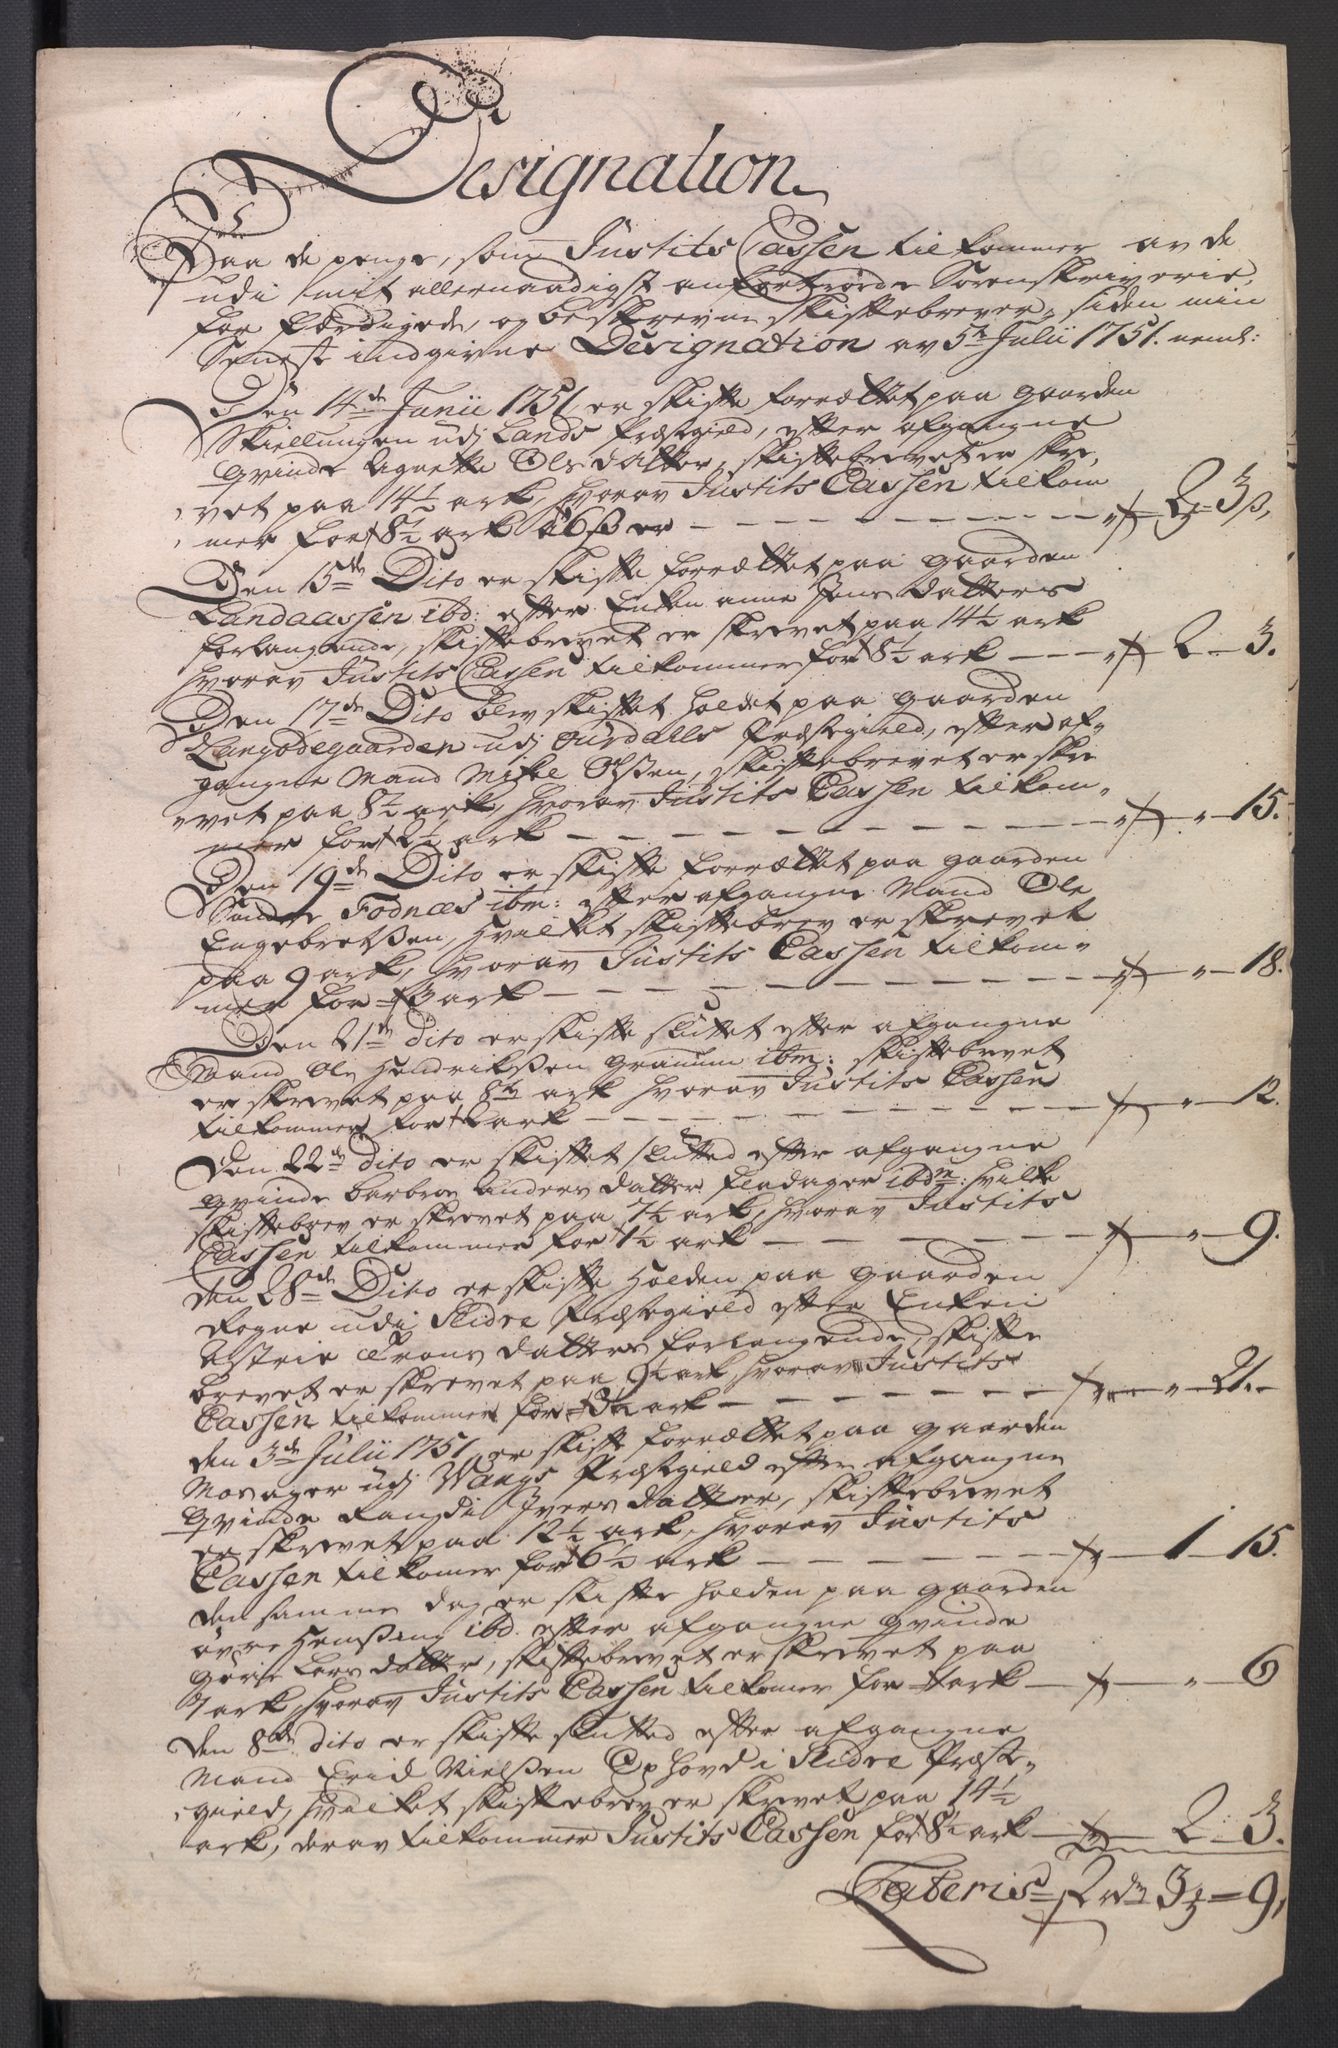 Designation
Paa de penge, som Justits Cassen tilkommer av de
udi mit allernaadigst anfortroede Sorenskriverie,
forfærdigede, og beskrevne skiftebrever, siden min
Seneste indgivne Designation av 5te Julii 1751. neml:
Den 14de Junii 1751 er skifte forrættet paa gaarden
Skiellungen udj Lands Præstegield, efter afgangne
qvinde Agnette Olsdatter, skiftebrevet er skre,
vet paa 14½ ark, hvorav Justits Cassen tilkom
mer for 8½ ark a 6ß er — 2 = 3ß,
Den 15de Dito er skifte forrættet paa gaarden
Landaassen ibd: efter Enken anne Jens datters
forlangende, skiftebrevet er skrevet paa 14½ ark
hvorav Justits Cassen tilkommer for 8½ ark — 2 - 3.
Den 17de Dito blev skiftet holdet paa gaarden
Langødegaarden udj Ourdalls Præstegield, efter af-
gangne Mand Mikel Olßen, skiftebrevet er skre
vet paa 8½ ark, hvorav Justits Cassen tilkom,,
mer for 2½ ark — " - 15.
Den 19de Dito er skifte forrættet paa gaarden
Søndre Fodnæs ibm: efter afgangne Mand Ole
Engebretßen, hvilket skiftebrev er skrevet
paa 9 ark, hvorav Justits Cassen tilkom,,
mer for 3 ark — " - 18.
Den 21de dito er skifte sluttet efter afgangne
Mand Ole Hendrikßen Granum ibm: skiftebrevet
er skrevet paa 8 ark hvorav Justits Cassen
tilkommer for 2 ark — " - 12.
Den 22de dito er skiftet slutted efter afgangne
qvinde Barbroe Anders datter ibdm: hvilke
skiftebrev er skrevet paa 7½ ark, hvorav Justits
Cassen tilkommer for 1½ ark — " - 9.
den 28de Dito er skifte holden paa gaarden
Rogne udi Slidre Præstegield efter Enken
Astrie Trons datters forlangende, skifte
brevet er skrevet paa 9½ ark hvorav Justits
Cassen tilkommer for 3½ ark — " - 21.
den 3de Julii 1751 er skifte forrættet paa gaarden
Mosager udj Wangs Præstegield efter afgangne
Qvinde Randi Ivers datter, skiftebrevet
er skrevet paa 12½ ark, hvorav Justits
Cassen tilkomer for 6½ ark — 1 - 15.
den samme dag er skifte holden paa gaarden
øvre Henßing ibd. efter afgangne qvinde
Gørie Lars datter, skiftebrevet er skrevet paa
7 ark, hvorav Justits Cassen tilkomer for 1 ark — " - 6
den 8de dito er skifte slutted efter afgangne
Mand Erick Nielßen Ophovd i Slidre Præste,,
gield, hvilket skiftebrev er skrevet paa 14½
ark, derav tilkommer Justits Cassen for 8½ ark — 2 - 3.
Lateris 2 rdr 3 = 9,